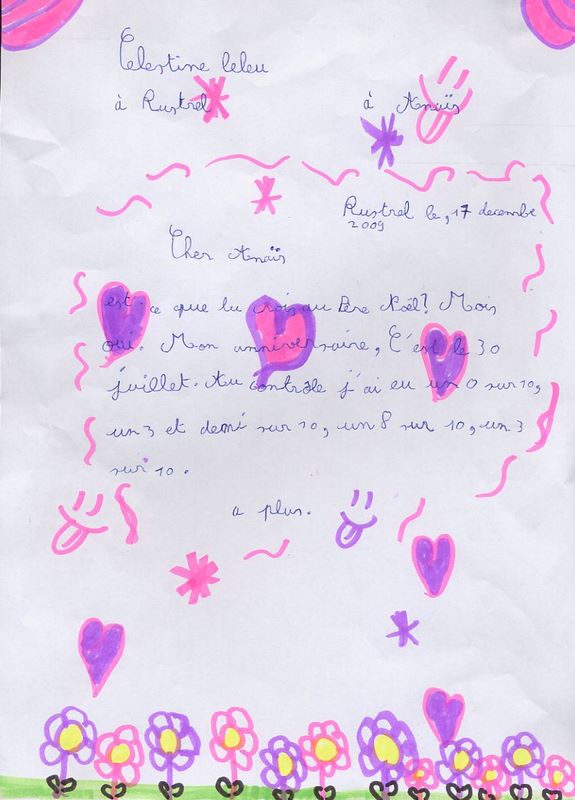 Celestine Leleu
à Rustrel
à Anaïs
Rustrel le, 17 decembre
2009
Cher Anaïs
est-ce que tu crois au Père Noël? Mois
oui. Mon anniversaire, C'est le 30
juillet. Au contrôle j'ai eu un 0 sur 10,
un 3 et demi sur 10, un 8 sur 10, un 3
sur 10.
a plus.